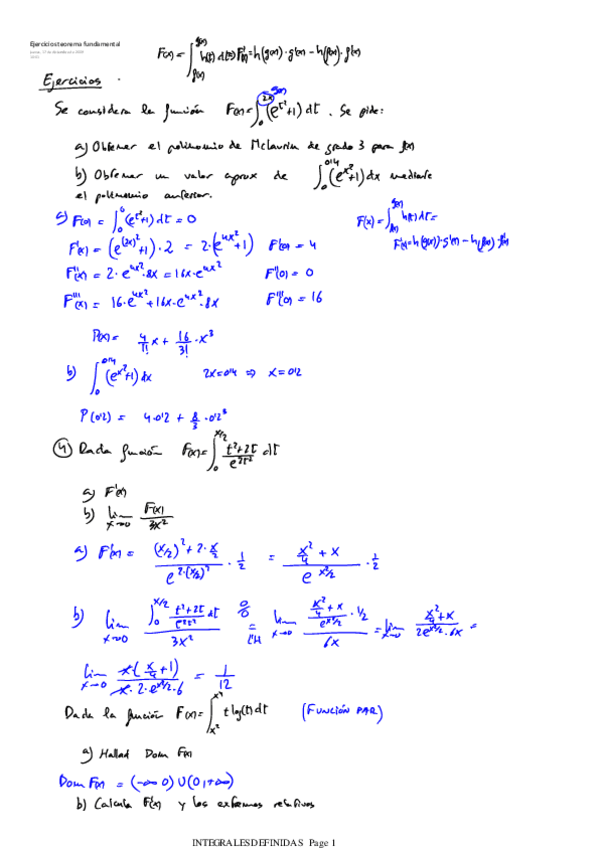 Ejercicios teorema fundamental
F(x) = ∫_{f(x)}^{g(x)} h(t) dt ⇒ F'(x) = h(g(x))·g'(x) − h(f(x))·f'(x)
Ejercicios.
Se considera la función F(x) = ∫_0^{2x} (e^{t²}+1) dt. Se pide:
a) Obtener el polinomio de McLaurin de grado 3 para f(x)
b) Obtener un valor aprox de ∫_0^{0'4} (e^{x²}+1) dx mediante
el polinomio anterior.
a) F(0) = ∫_0^0 (e^{t²}+1) dt = 0
F(x) = ∫_{f(x)}^{g(x)} h(t) dt =
F'(x) = (e^{(2x)²}+1)·2 = 2·(e^{4x²}+1) F'(0) = 4
F'(x) = h(g(x))·g'(x) − h(f(x))·f'(x)
F''(x) = 2·e^{4x²}·8x = 16x·e^{4x²} F''(0) = 0
F'''(x) = 16·e^{4x²} + 16x·e^{4x²}·8x F'''(0) = 16
P(x) = 4/1! x + 16/3! · x³
b) ∫_0^{0'4} (e^{x²}+1) dx 2x = 0'4 ⇒ x = 0'2
P(0'2) = 4·0'2 + 8/3 · 0'2³
④ Dada función F(x) = ∫_0^{x/2} (t²+2t)/e^{2t²} dt
a) F'(x)
b) lim_{x→0} F(x)/3x²
a) F'(x) = ((x/2)² + 2·x/2)/e^{2·(x/2)²} · 1/2 = (x²/4 + x)/e^{x²/2} · 1/2
b) lim_{x→0} (∫_0^{x/2} (t²+2t)/e^{2t²} dt)/3x² 0/0 =_{L'H} lim_{x→0} ((x²/4 + x)/e^{x²/2} · 1/2)/6x = lim_{x→0} (x²/4 + x)/(2e^{x²/2}·6x) =
lim_{x→0} x·(x/4 + 1)/(x·2·e^{x²/2}·6) = 1/12
Dada la función F(x) = ∫_{x²} t log(t) dt (FUNCIÓN PAR)
a) Hallad Dom F(x)
Dom F(x) = (-∞ 0) ∪ (0, +∞)
b) Calcula F'(x) y los extremos relativos
INTEGRALES DEFINIDAS Page 1